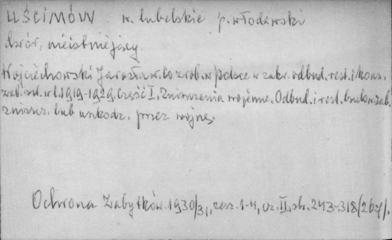 UŚCIMÓW w. lubelskie p. włodawski
dwór, nieistniejący
Wojciechowski Jarosław. Co zrob. w Polsce w zakr. odbud. rest. i kons.
zab. od r. 1919-1929 Część I. Zniszczenia wojenne. Odbud. i rest. budow. zab.
zniszcz. lub uszkodz. przez wojnę.
Ochrona Zabytków. 1930/31, zesz. 1-4, cz. II. str. 243-318 /267/.